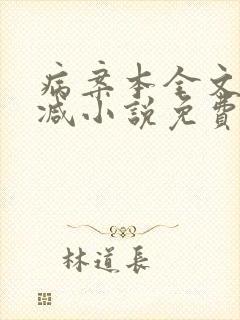 病案本全文
減小說免費
林道長